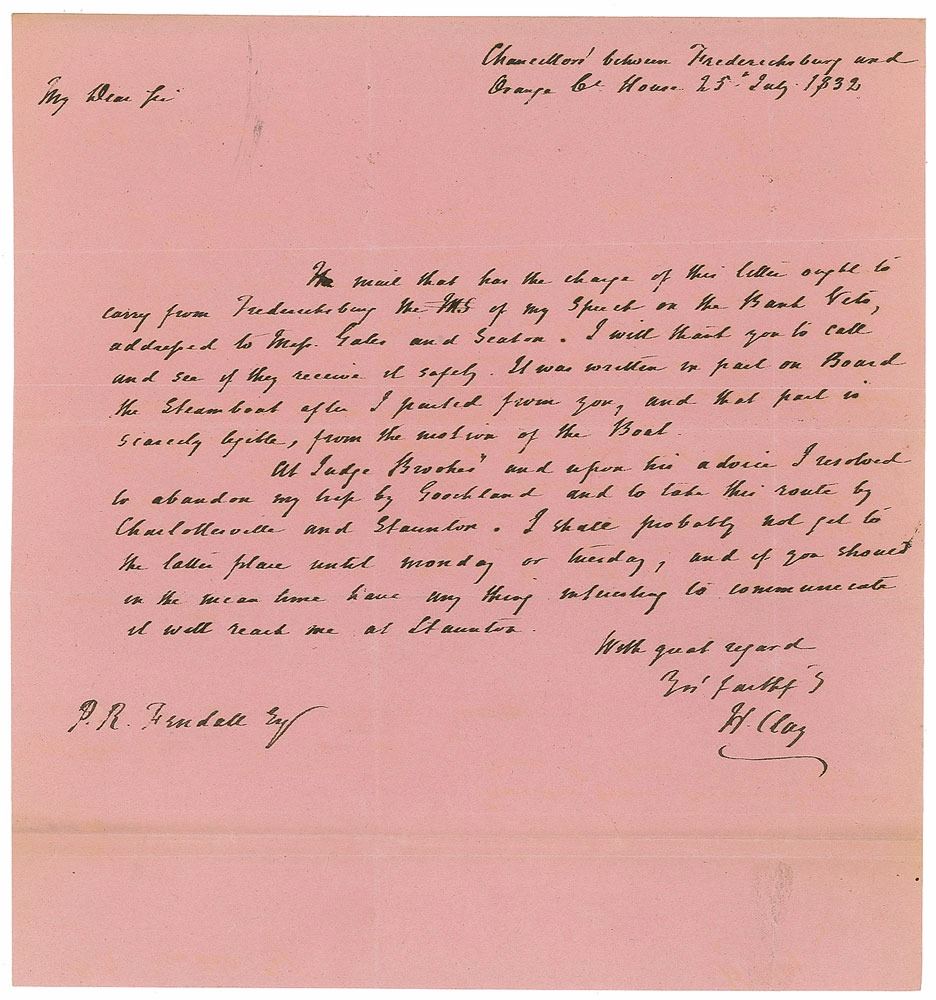 Chancellors' between Fredericksburg and
Orange Ct. House 25th July 1832
My Dear Sir
The mail that has the charge of this letter ought to
carry from Fredericksburg the MS of my Speech on the Bank Veto,
addressed to Mess. Gales and Seaton. I will thank you to call
and see if they receive it safely. It was written in part on Board
the Steamboat after I parted from you, and that part is
scarcely legible, from the motion of the Boat.
At Judge Brookes' and upon his advice I resolved
to abandon my trip by Goochland and to take this route by
Charlottesville and Staunton. I shall probably not get to
the latter place until monday or tuesday, and if you should
in the mean time have any thing interesting to communicate
it will reach me at Staunton.
With great regard
Yrs faithf'y
H. Clay
P. R. Fendall Esq